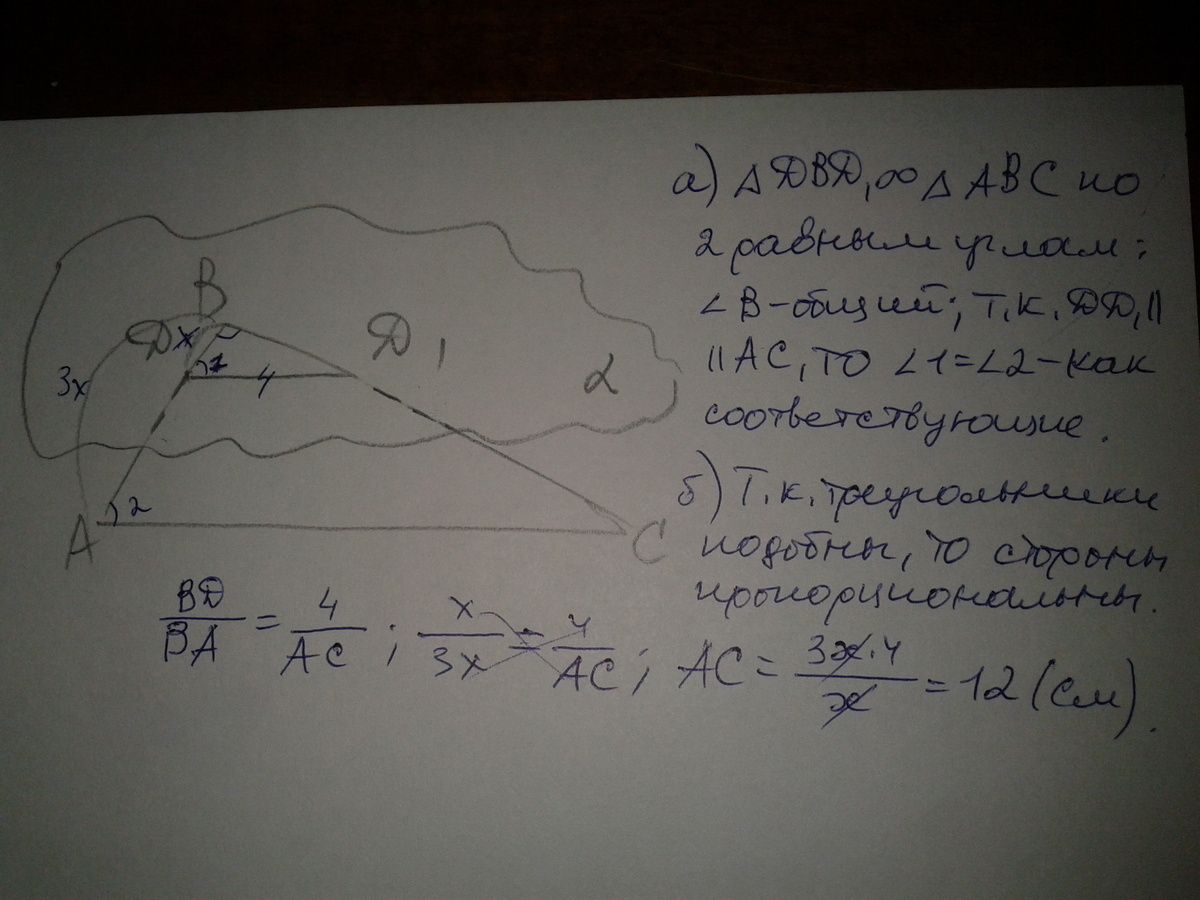 а) △ DBD₁ ∞ △ ABC по
2 равным углам:
∠B - общий; т.к. DD₁ ||
|| AC, то ∠1=∠2 - как
соответствующие.
б) Т.к. треугольники
подобны, то стороны
пропорциональны.
B
D x
D₁
3x
1
4
α
2
A
C
BD/BA = 4/AC ; x/3x = 4/AC ; AC = 3x·4/x = 12 (см).